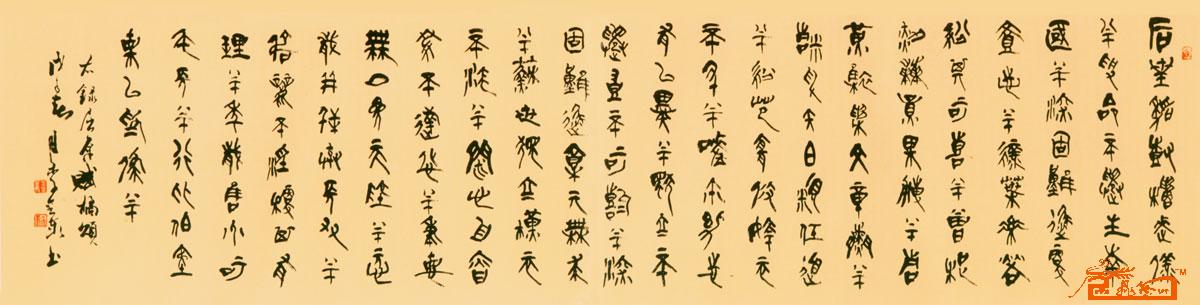 后皇嘉樹橘徠服
兮受命不遷生南
國兮深固難徙更
壹志兮綠葉素榮
紛其可喜兮曾枝
剡棘圓果摶兮青
黃雜糅文章爛兮
精色內白類任道
兮紛縕宜脩姱而
不醜兮嗟爾幼志
有以異兮獨立不
遷豈不可喜兮深
固難徙廓其無求
兮蘇世獨立橫而
不流兮閉心自慎
終不過失兮秉德
無私參天地兮願
歲并謝與長友兮
淑離不淫梗其有
理兮年歲雖少可
師長兮行比伯夷
置以為像兮
右錄屈原賦橘頌
春月書